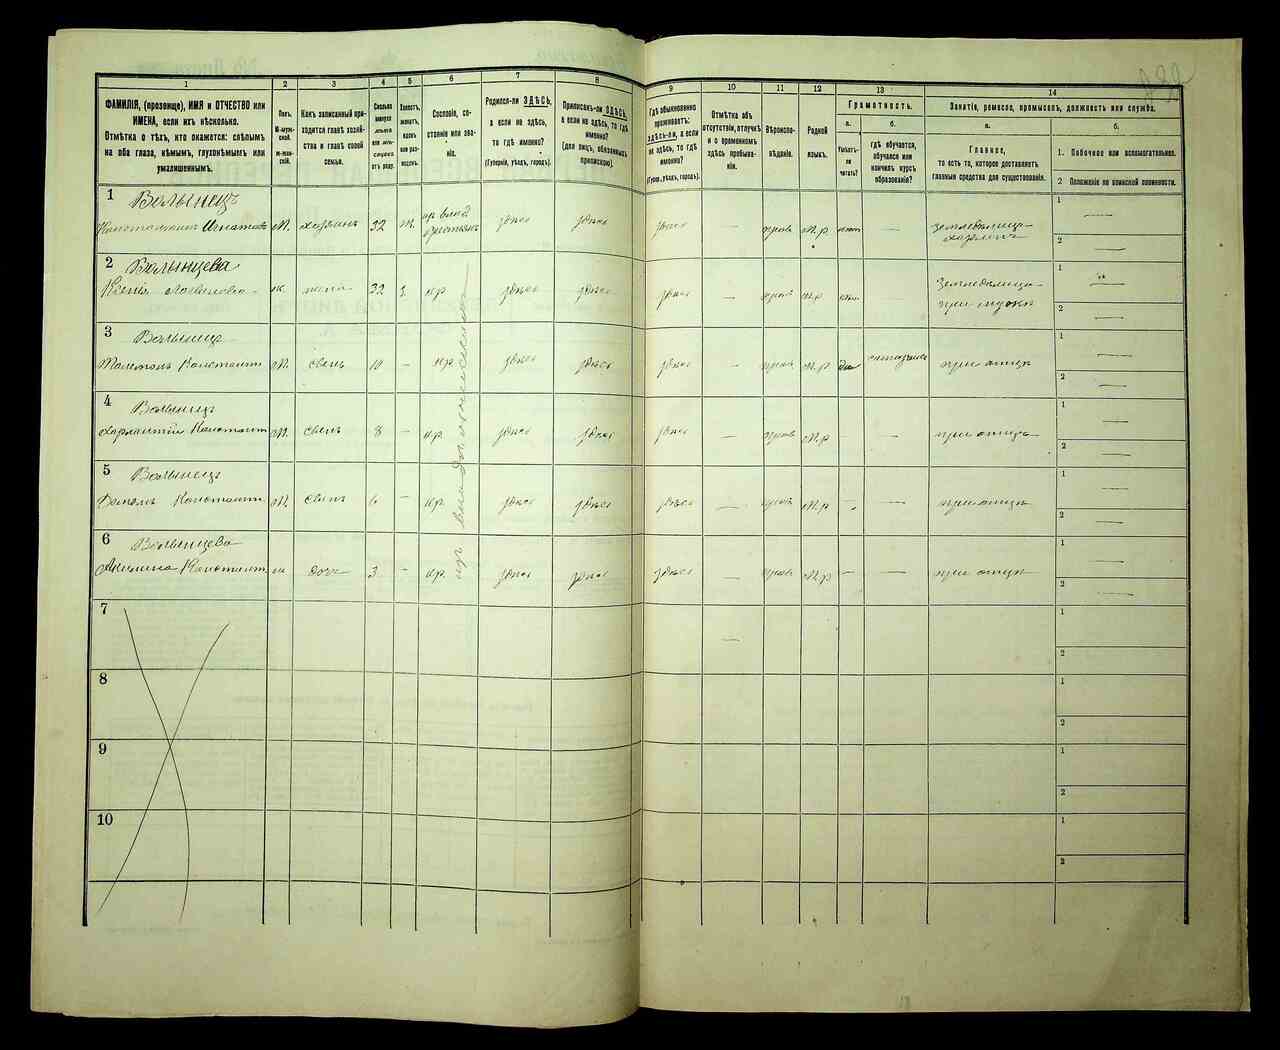 1
2
3
4
5
6
7
8
9
10
11
12
13
14
ФАМИЛІЯ, (прозвище), ИМЯ и ОТЧЕСТВО или
ИМЕНА, если ихъ нѣсколько.
Отмѣтка о тѣхъ, кто окажется: слѣпымъ
на оба глаза, нѣмымъ, глухонѣмымъ или
умалишеннымъ.
Полъ.
М-мужской.
Ж-женскій.
Какъ записанный при-
ходится главѣ хозяй-
ства и главѣ своей
семьи.
Сколько
минуло
лѣтъ
или мѣ-
сяцевъ
отъ роду.
Холостъ,
женатъ,
вдовъ
или раз-
веденъ.
Сословіе, со-
стояніе или зва-
ніе.
Родился-ли ЗДѢСЬ,
а если не здѣсь,
то гдѣ именно?
(Губернія, уѣздъ, городъ).
Приписанъ-ли ЗДѢСЬ,
а если не здѣсь, то гдѣ
именно?
(Для лицъ, обязанныхъ
припискою).
Гдѣ обыкновенно
проживаетъ:
здѣсь-ли, а если
не здѣсь, то гдѣ
именно?
(Губер., уѣздъ, городъ).
Отмѣтка объ
отсутствіи, отлучкѣ
и о временномъ
здѣсь пребыва-
ніи.
Вѣроиспо-
вѣданіе.
Родной
языкъ.
Грамотность.
а.
Умѣетъ-
ли
читать?
б.
гдѣ обучается,
обучался или
кончилъ курсъ
образованія?
Занятіе, ремесло, промыселъ, должность или служба.
а.
Главное,
то есть то, которое доставляетъ
главныя средства для существованія.
б.
1. Побочное или вспомогательное.
2 Положеніе по воинской повинности.
1 Волынецъ
Константинъ Игнатовъ М. хозяинъ 32 ж. здѣсь здѣсь здѣсь — прав М.р нѣтъ —
1 —
2 —
2 Волынцева
Ксенія жена 32 з. кр. здѣсь здѣсь здѣсь — прав М.р
при мужѣ
1 —
2 —
3 Волынецъ
Константин М. сынъ 10 — кр. здѣсь здѣсь здѣсь — прав М.р да при отцѣ
1 —
2 —
4 Волынецъ
Харлампій Константин М. сынъ 8 — кр. здѣсь здѣсь здѣсь — прав М.р — — при отцѣ
1 —
2 —
5 Волынецъ
Константин. М. сынъ 6 — кр. здѣсь здѣсь здѣсь — прав М.р — — при отцѣ
1 —
2 —
6 Волынцева
Акилина Константин. ж дочь 3 — кр. здѣсь здѣсь здѣсь — прав М.р — — при отцѣ
1 —
2 —
7
1
2
8
1
2
9
1
2
10
1
2